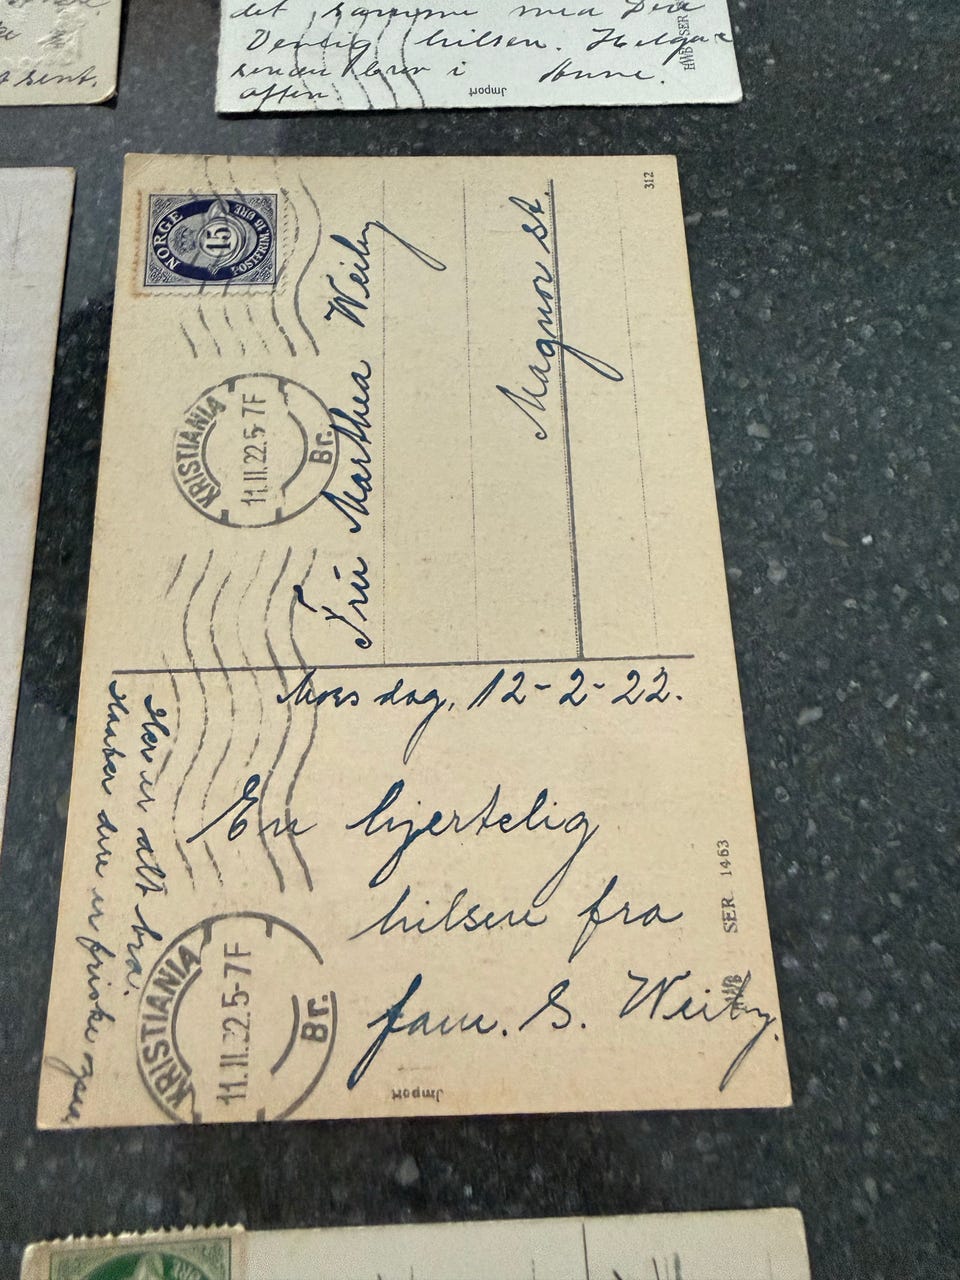 det samme med Dere
Venlig hilsen. Helga
sender brev i
aften
Anne.
Jmport
HWB SER
sent.
NORGE
15
POSTFRIM. 15 ØRE
KRISTIANIA
11.II.22.5-7F
Br.
312
Fru Marthea Weiby
Magnor st.
Morsdag, 12-2-22.
En hjertelig
hilsen fra
fam. S. Weiby.
Her er alt bra.
Haaber dere er friske ogsaa
KRISTIANIA
11.II.22.5-7F
Br.
HWB SER. 1463
Jmport